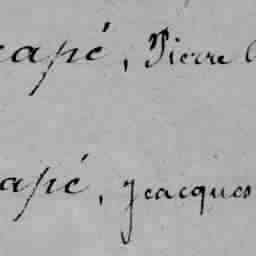 capé, Pierre
apé, Jeacques